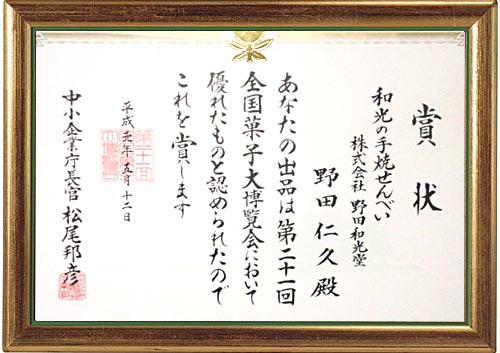 賞状
和光の手焼せんべい
株式会社 野田和光堂
野田仁久殿
あなたの出品は第二十一回
全国菓子大博覧会において
優れたものと認められたので
これを賞します
平成元年五月十二日
中小企業庁長官 松尾邦彦